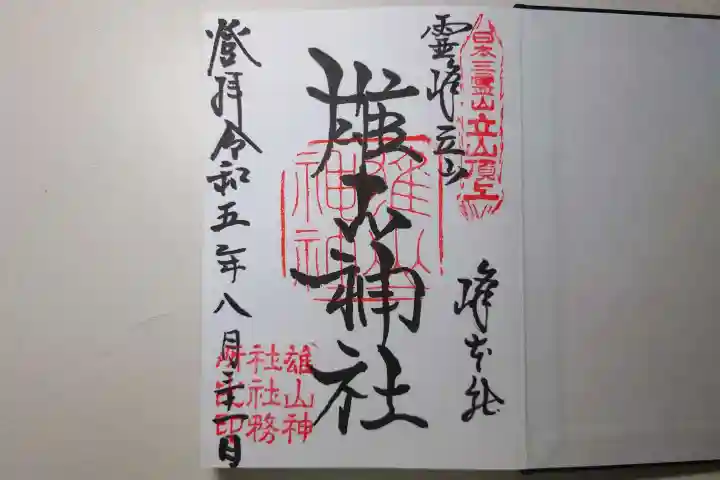 日本三霊山立山頂上
霊峰立山
峰本社
雄山神社
登拝令和五年八月
雄山神
社社務
所之印